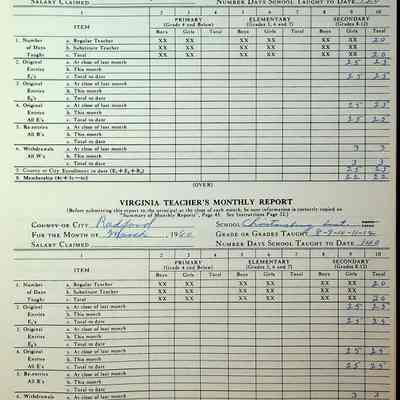 SALARY CLAIMED NUMBER DAYS SCHOOL TAUGHT TO DATE 120
1 2 3 4 5 6 7 8 9 10
ITEM PRIMARY (Grade 4 and Below) ELEMENTARY (Grades 5, 6 and 7) SECONDARY (Grades 8-12)
Boys Girls Total Boys Girls Total Boys Girls Total
1. Number a. Regular Teacher XX XX XX XX XX XX 20
of Days b. Substitute Teacher XX XX XX XX XX XX
Taught c. Total XX XX XX XX XX XX 20
2. Original a. At close of last month 25 25
Entries b. This month
E₁'s c. Total to date 25 25
3. Original a. At close of last month
Entries b. This month
c. Total to date
4. Original a. At close of last month 25 25
Entries b. This month
All E's c. Total to date 25 25
5. Re-entries a. At close of last month
All R's b. This month
c. Total to date
6. Withdrawals a. At close of last month 3 3
All W's b. This month
c. Total to date 3 3
7. County or City Enrollment to date (E₁+E₂+R₂) 25 25
8. Membership (4c+5c-6c) 22 22
(OVER)
VIRGINIA TEACHER'S MONTHLY REPORT
(Before submitting this report to the principal at the close of each month, be sure information is correctly copied on
"Summary of Monthly Reports", Page 41. See Instructions Page 12.)
COUNTY OR CITY Radford SCHOOL Christiansburg Inst.
FOR THE MONTH OF March, 1960 GRADE OR GRADES TAUGHT 8-9-10-11-12
SALARY CLAIMED NUMBER DAYS SCHOOL TAUGHT TO DATE 140
1 2 3 4 5 6 7 8 9 10
ITEM PRIMARY (Grade 4 and Below) ELEMENTARY (Grades 5, 6 and 7) SECONDARY (Grades 8-12)
Boys Girls Total Boys Girls Total Boys Girls Total
1. Number a. Regular Teacher XX XX XX XX XX XX 20
of Days b. Substitute Teacher XX XX XX XX XX XX
Taught c. Total XX XX XX XX XX XX 20
2. Original a. At close of last month 25 25
Entries b. This month
E₁'s c. Total to date 25 25
3. Original a. At close of last month
Entries b. This month
c. Total to date
4. Original a. At close of last month 25 25
Entries b. This month
All E's c. Total to date 25 25
5. Re-entries a. At close of last month
All R's b. This month
c. Total to date
6. Withdrawals a. At close of last month 3 3